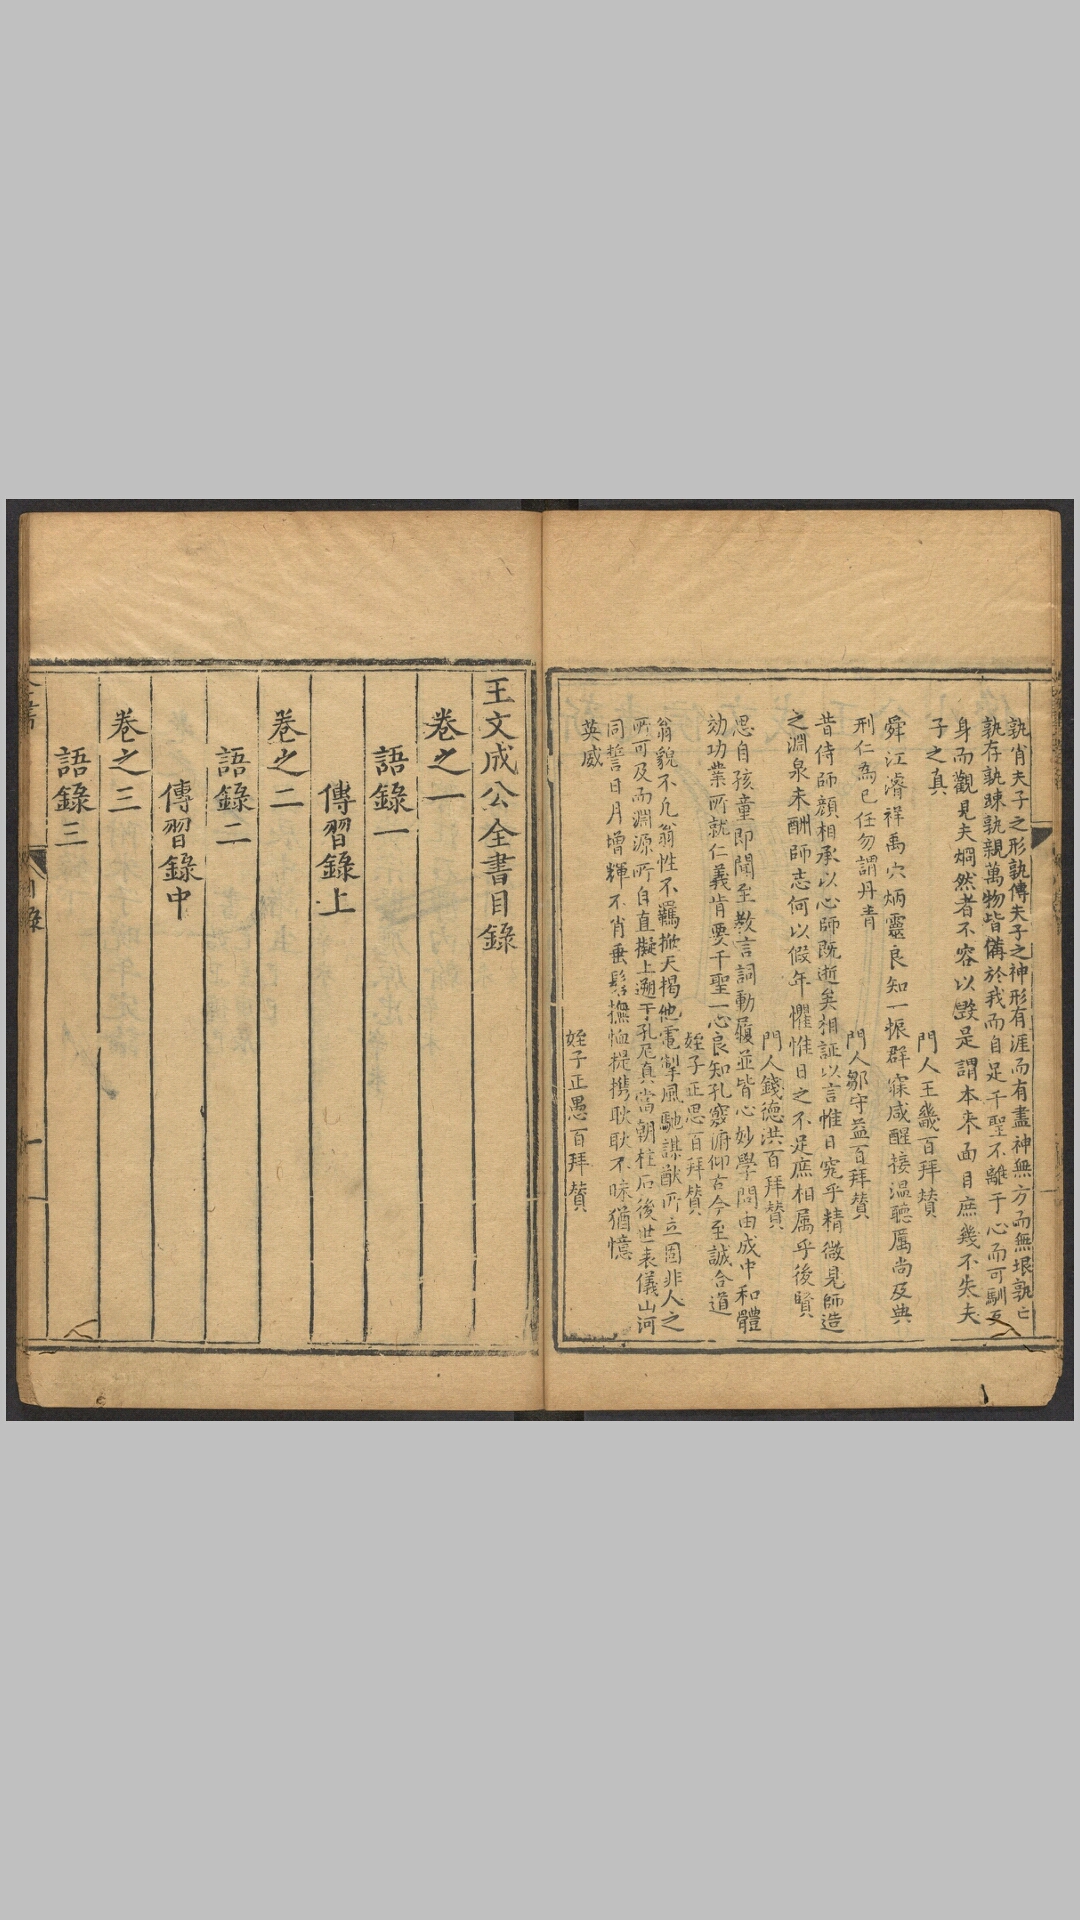 孰肖夫子之形孰傳夫子之神形有涯而有盡神無方而無垠孰亡
孰存孰踈孰親萬物皆備於我而自足千聖不離于心而可馴反
身而觀見夫烱然者不容以毀是謂本来面目庶幾不失夫
子之真
門人王畿百拜贊
舜江濬祥禹穴炳靈良知一振群寐咸醒接温聽厲尚及典
刑仁為已任勿謂丹青
門人鄒守益百拜贊
昔侍師顔相承以心師既逝矣相証以言惟日究乎精微見師造
之淵泉未酬師志何以假年懼惟日之不足庶相属乎後賢
門人錢德洪百拜贊
思自孩童即聞至教言詞動履並皆心妙學問由成中和體
効功業所就仁義肯要千聖一心良知孔竅俯仰古今至誠合道
姪子正思百拜贊
翁貌不凡翁性不羈掀天揭地電掣風馳謀猷所立固非人之
所可及而淵源所自直擬上遡于孔尼真當朝柱石後世表儀山河
同誓日月增輝不肖垂髫撫恤提携耿耿不昧猶憶
英威
姪子正愚百拜贊
王文成公全書目錄
卷之一
語錄一
傳習錄上
卷之二
語錄二
傳習錄中
卷之三
語錄三
全書
目錄
一